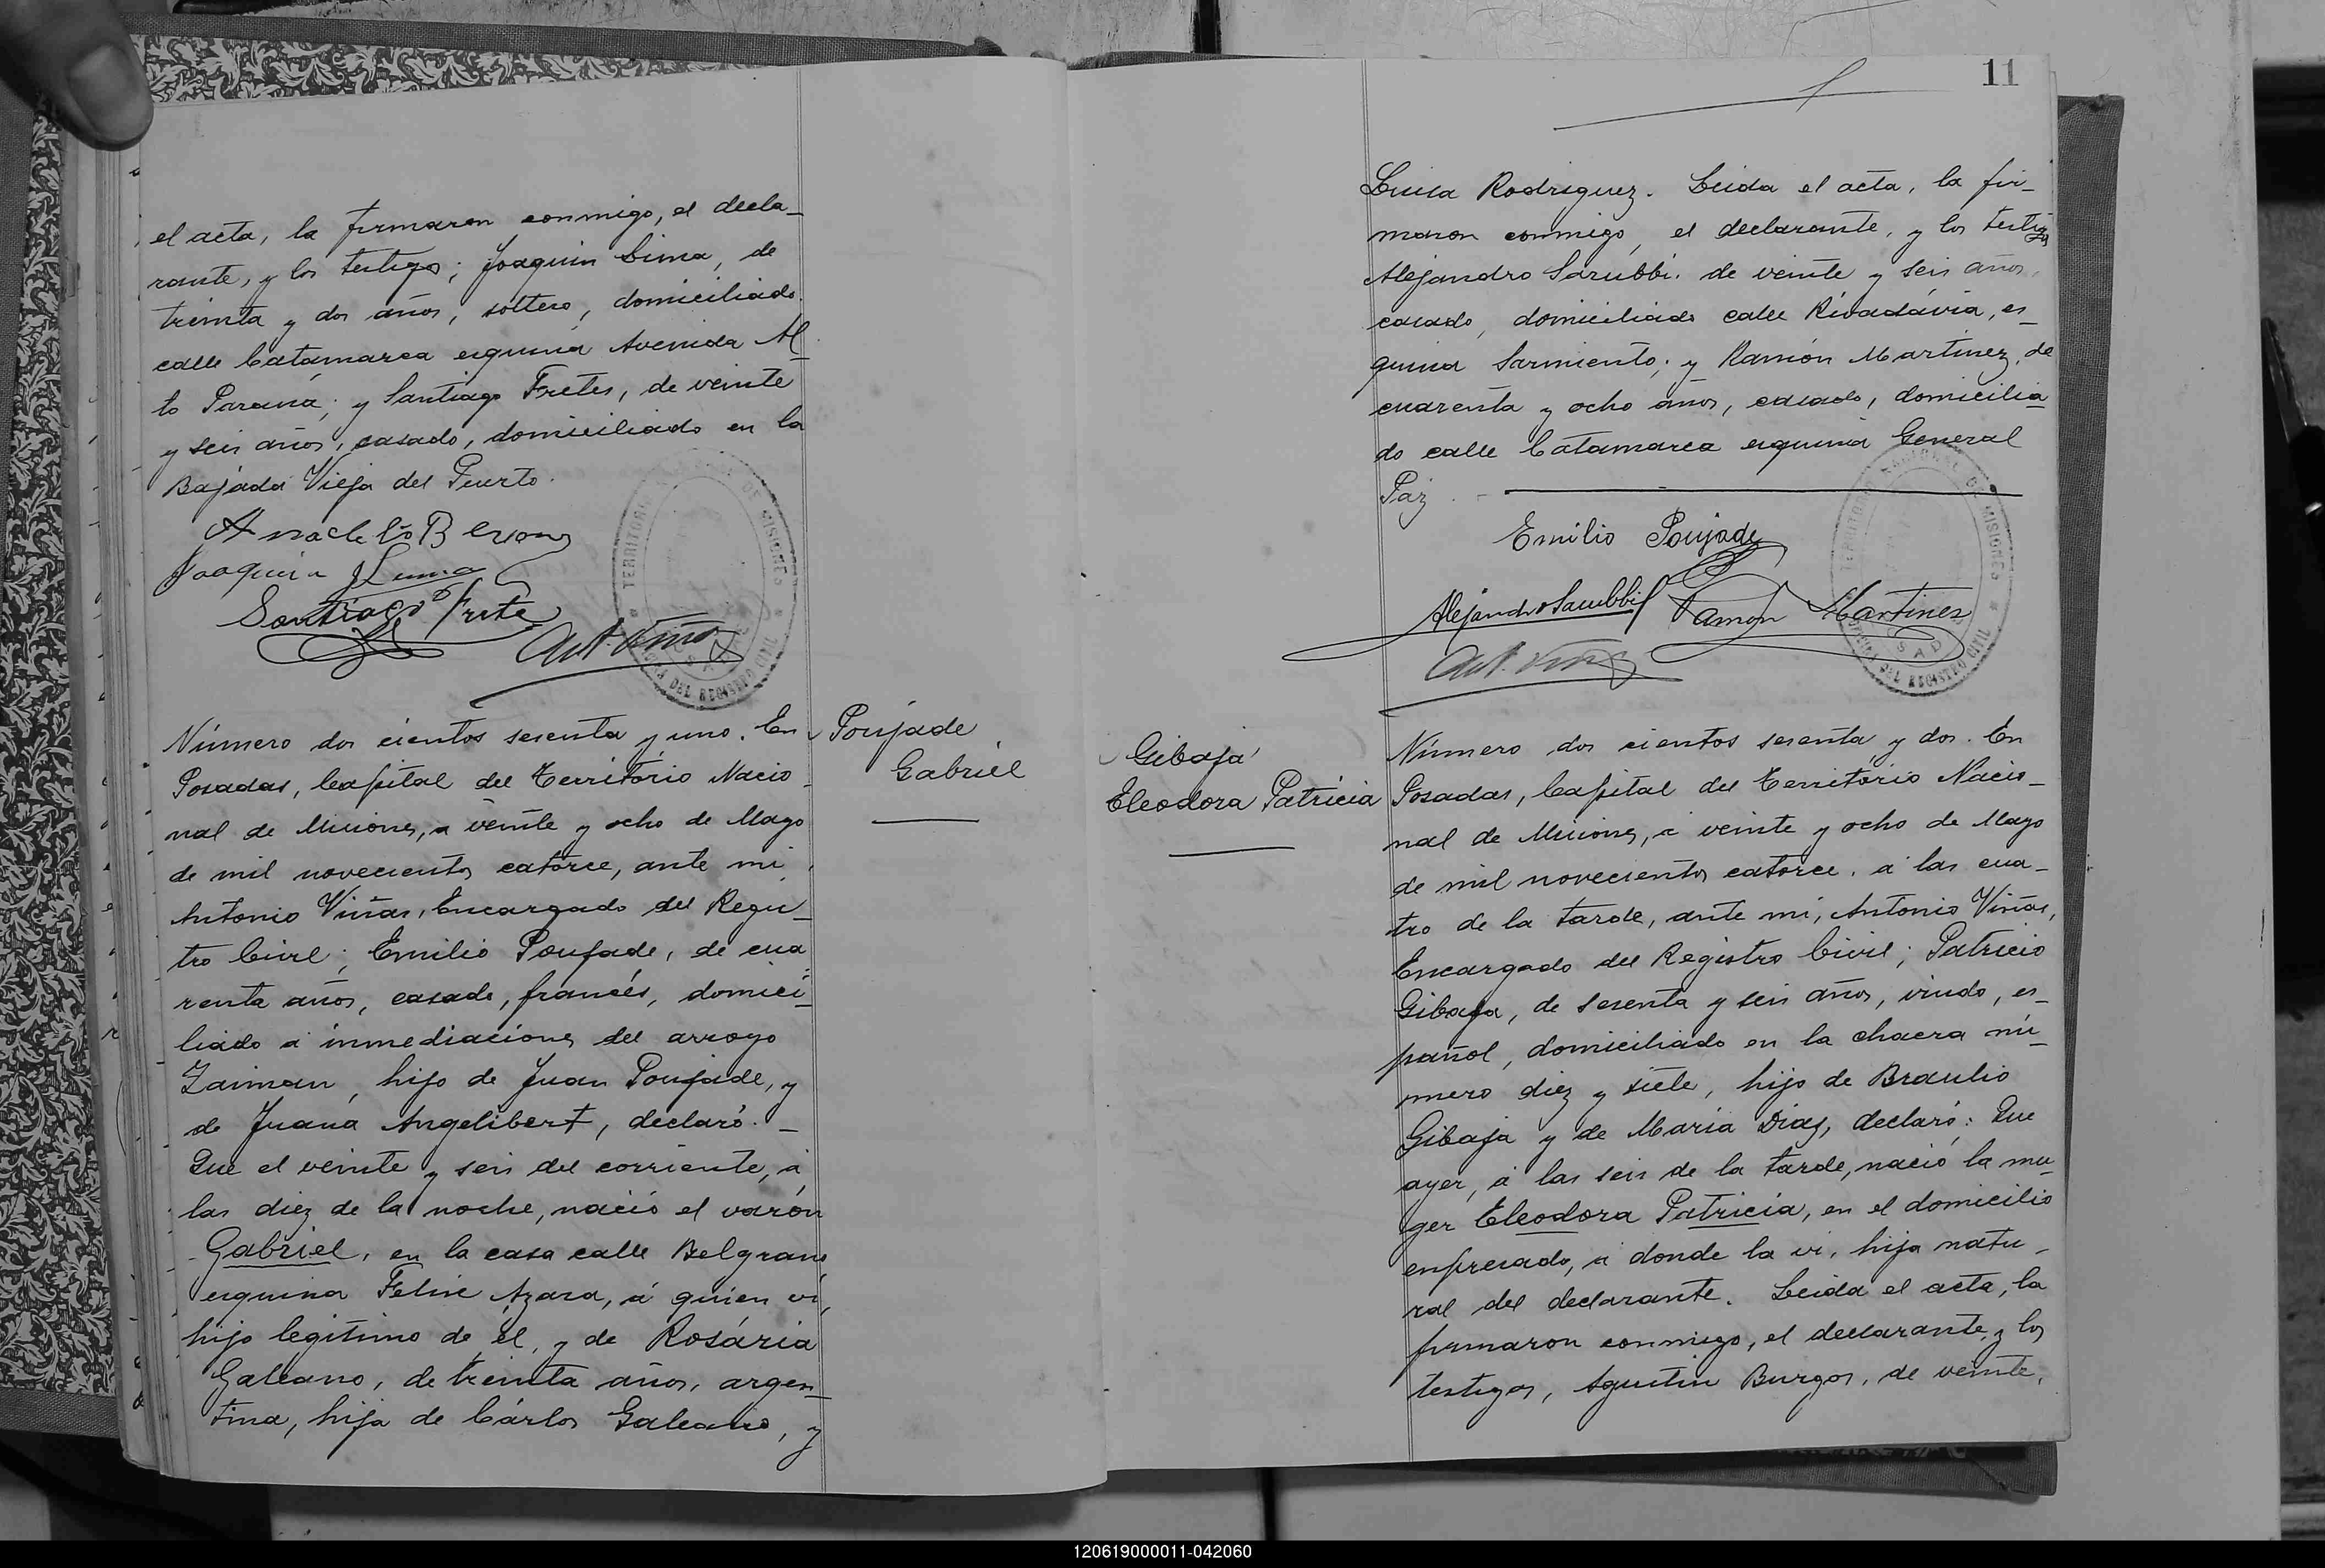 el acta, la firmaron conmigo, el decla-
rante, y los testigos; Joaquin Lima, de
treinta y dos años, soltero, domiciliado
calle Catamarca esquina Avenida Al-
to Paraná; y Santiago Fretes, de veinte
y seis años, casado, domiciliado en la
Bajada Vieja del Puerto.
Anacleto
Joaquin Lima
Santiago Frete
Ant. Viñas
TERRITORIO NACIONAL DE MISIONES
OFICINA DEL REGISTRO CIVIL
Número dos cientos sesenta y uno. En
Posadas, Capital del Territorio Nacio-
nal de Misiones, a veinte y ocho de Mayo
de mil novecientos catorce, ante mi,
Antonio Viñas, Encargado del Regis-
tro Civil; Emilio Poujade, de cua-
renta años, casado, francés, domici-
liado á inmediaciones del arroyo
Zaiman, hijo de Juan Poujade, y
de Juana Angelibert, declaró. -
Que el veinte y seis del corriente, á
las diez de la noche, nació el varón
Gabriel, en la casa calle Belgrano
esquina Felix Azara, á quien vi,
hijo legitimo de él, y de Rosária
Galeano, de treinta años, argen-
tina, hija de Cárlos Galeano, y
Poujade
Gabriel
11
Luisa Rodriguez. Leida el acta, la fir-
maron conmigo, el declarante, y los testigos
Alejandro Sarubbi, de veinte y seis años,
casado, domiciliado calle Rivadávia, es-
quina Sarmiento; y Ramón Martinez, de
cuarenta y ocho años, casado, domicilia-
do calle Catamarca esquina General
Paz. -
Emilio Poujade
Alejandro Sarubbi
Ramon Martinez
Ant. Viñas
TERRITORIO NACIONAL DE MISIONES
POSADAS
OFICINA DEL REGISTRO CIVIL
Gibaja
Eleodora Patricia
Número dos cientos sesenta y dos. En
Posadas, Capital del Territorio Nacio-
nal de Misiones, á veinte y ocho de Mayo
de mil novecientos catorce, á las cua-
tro de la tarde, ante mi, Antonio Viñas,
Encargado del Registro Civil; Patricio
Gibaja, de sesenta y seis años, viudo, es-
pañol, domiciliado en la chacra nú-
mero diez y siete, hijo de Braulio
Gibaja y de Maria Dias, declaró: Que
ayer, á las seis de la tarde, nació la mu-
ger Eleodora Patricia, en el domicilio
expresado, á donde la vi, hija natu-
ral del declarante. Leida el acta, la
firmaron conmigo, el declarante, y los
testigos, Agustin Burgos, de veinte,
120619000011-042060